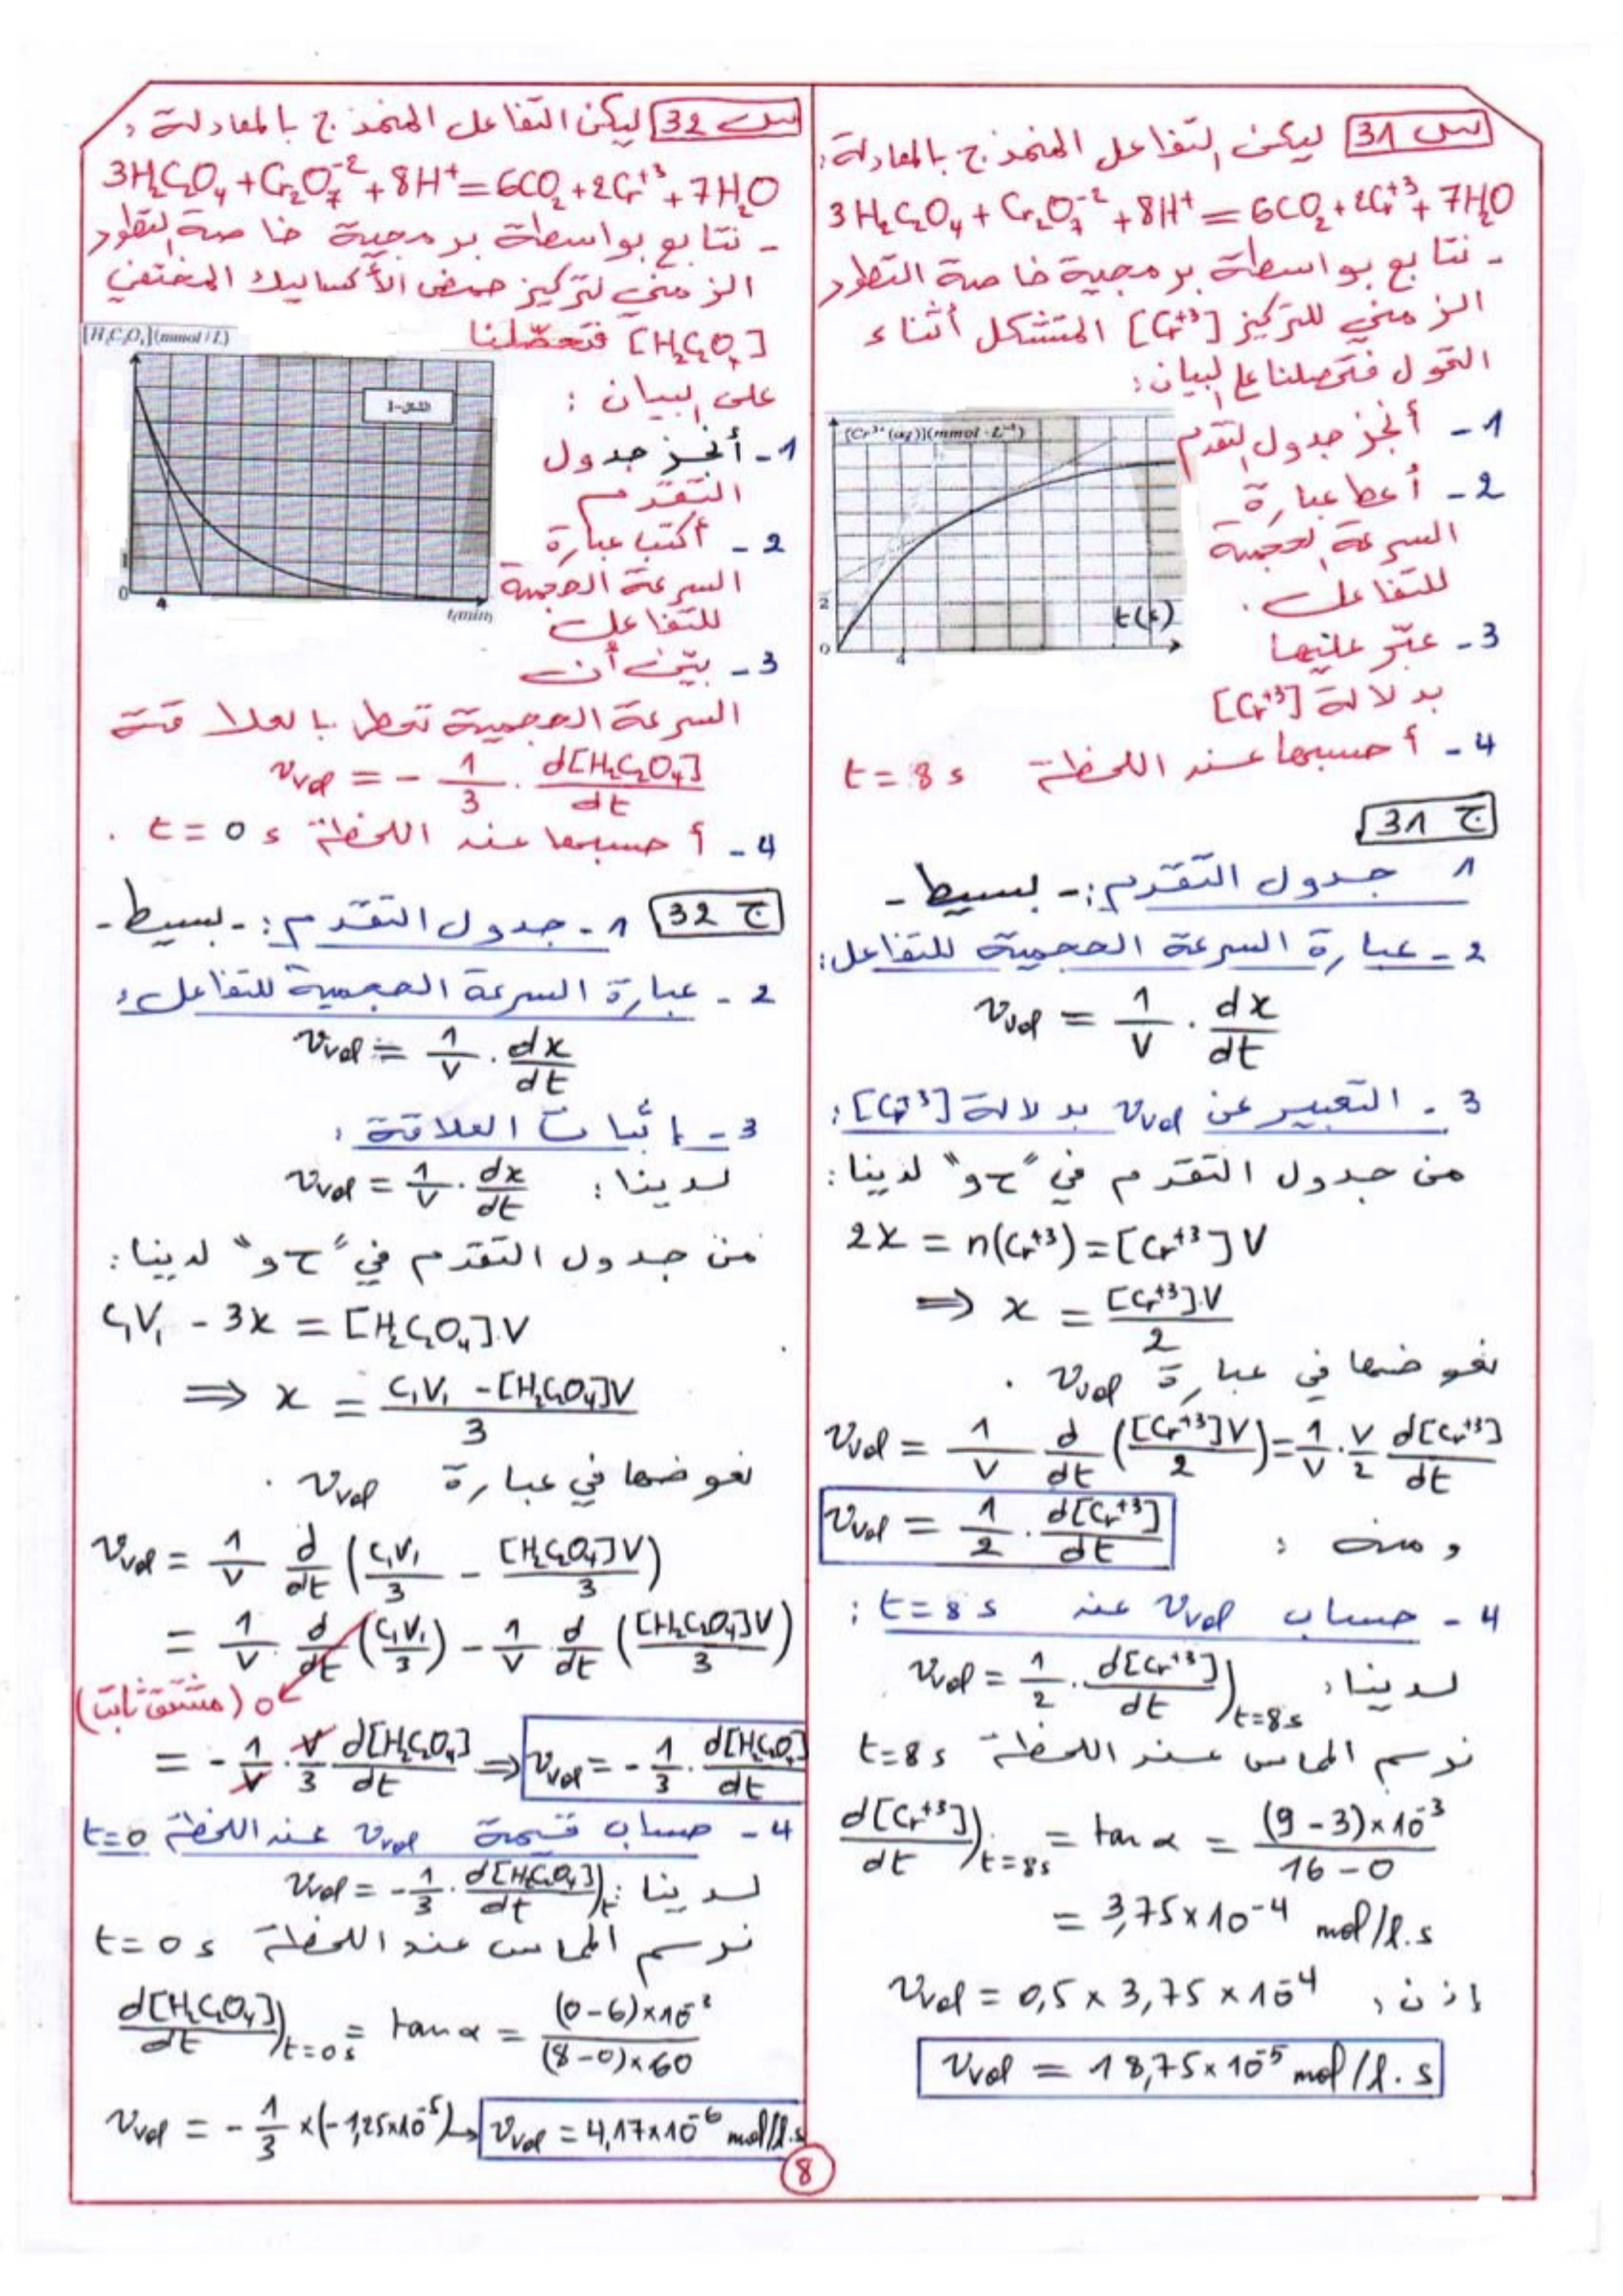 س 31 ليكن التفاعل المنمذج بالمعادلة:
3H₂C₂O₄ + Cr₂O₇⁻² + 8H⁺ = 6CO₂ + 2Cr⁺³ + 7H₂O
- نتابع بواسطة برمجية خاصة التطور
الزمني للتركيز [Cr⁺³] المتشكل أثناء
التحول فتحصلنا على البيان:
[Cr³⁺(aq)](mmol·L⁻¹)
2
0
4
t(s)
1- أنجز جدول التقدم
2- أعط عبارة
السرعة الحجمية
للتفاعل.
3- عبّر عليها
بدلالة [Cr⁺³]
4- أحسبها عند اللحظة t = 8 s
ج 31
1 جدول التقدم: - بسيط -
2- عبارة السرعة الحجمية للتفاعل:
v_vol = 1/V . dx/dt
3. التعبير عن v_vol بدلالة [Cr⁺³]:
من جدول التقدم في "ح و" لدينا:
2x = n(Cr⁺³) = [Cr⁺³]V
⇒ x = [Cr⁺³].V/2
نعوضها في عبارة v_vol .
v_vol = 1/V d/dt ([Cr⁺³]V/2) = 1/V . V/2 d[Cr⁺³]/dt
ومنه : v_vol = 1/2 . d[Cr⁺³]/dt
4- حساب v_vol عند t = 8 s :
لدينا: v_vol = 1/2 . d[Cr⁺³]/dt)t=8s
نرسم المماس عند اللحظة t=8 s
d[Cr⁺³]/dt)t=8s = tan α = (9 - 3)×10⁻³/16 - 0
= 3,75×10⁻⁴ mol/l.s
إذن: v_vol = 0,5 × 3,75 × 10⁻⁴
v_vol = 18,75×10⁻⁵ mol/l.s
س 32 ليكن التفاعل المنمذج بالمعادلة:
3H₂C₂O₄ + Cr₂O₇⁻² + 8H⁺ = 6CO₂ + 2Cr⁺³ + 7H₂O
- نتابع بواسطة برمجية خاصة التطور
الزمني لتركيز حمض الأكساليك المختفي
[H₂C₂O₄] فتحصّلنا
على البيان :
[H₂C₂O₄](mmol/L)
الشكل-1
1
0
4
t(min)
1- أنجز جدول
التقدم
2- أكتب عبارة
السرعة الحجمية
للتفاعل.
3- بيّن أن
السرعة الحجمية تعطى بالعلاقة
v_vol = - 1/3 . d[H₂C₂O₄]/dt
4- أحسبها عند اللحظة t = 0 s .
ج 32 1- جدول التقدم: - بسيط -
2- عبارة السرعة الحجمية للتفاعل:
v_vol = 1/V . dx/dt
3- إثبات العلاقة :
لدينا: v_vol = 1/V . dx/dt
من جدول التقدم في "ح و" لدينا:
C₁V₁ - 3x = [H₂C₂O₄].V
⇒ x = C₁V₁ - [H₂C₂O₄]V/3
نعوضها في عبارة v_vol .
v_vol = 1/V d/dt (C₁V₁/3 - [H₂C₂O₄]V/3)
= 1/V d/dt (C₁V₁/3) - 1/V d/dt ([H₂C₂O₄]V/3)
0 (مشتق ثابت)
= - 1/V . V/3 d[H₂C₂O₄]/dt ⇒ v_vol = - 1/3 . d[H₂C₂O₄]/dt
4- حساب قيمة v_vol عند اللحظة t=0
لدينا: v_vol = - 1/3 . d[H₂C₂O₄]/dt)t
نرسم المماس عند اللحظة t = 0 s
d[H₂C₂O₄]/dt)t=0s = tan α = (0-6)×10⁻³/(8-0)×60
v_vol = - 1/3 ×(-1,25×10⁻⁵) → v_vol = 4,17×10⁻⁶ mol/l.s
8